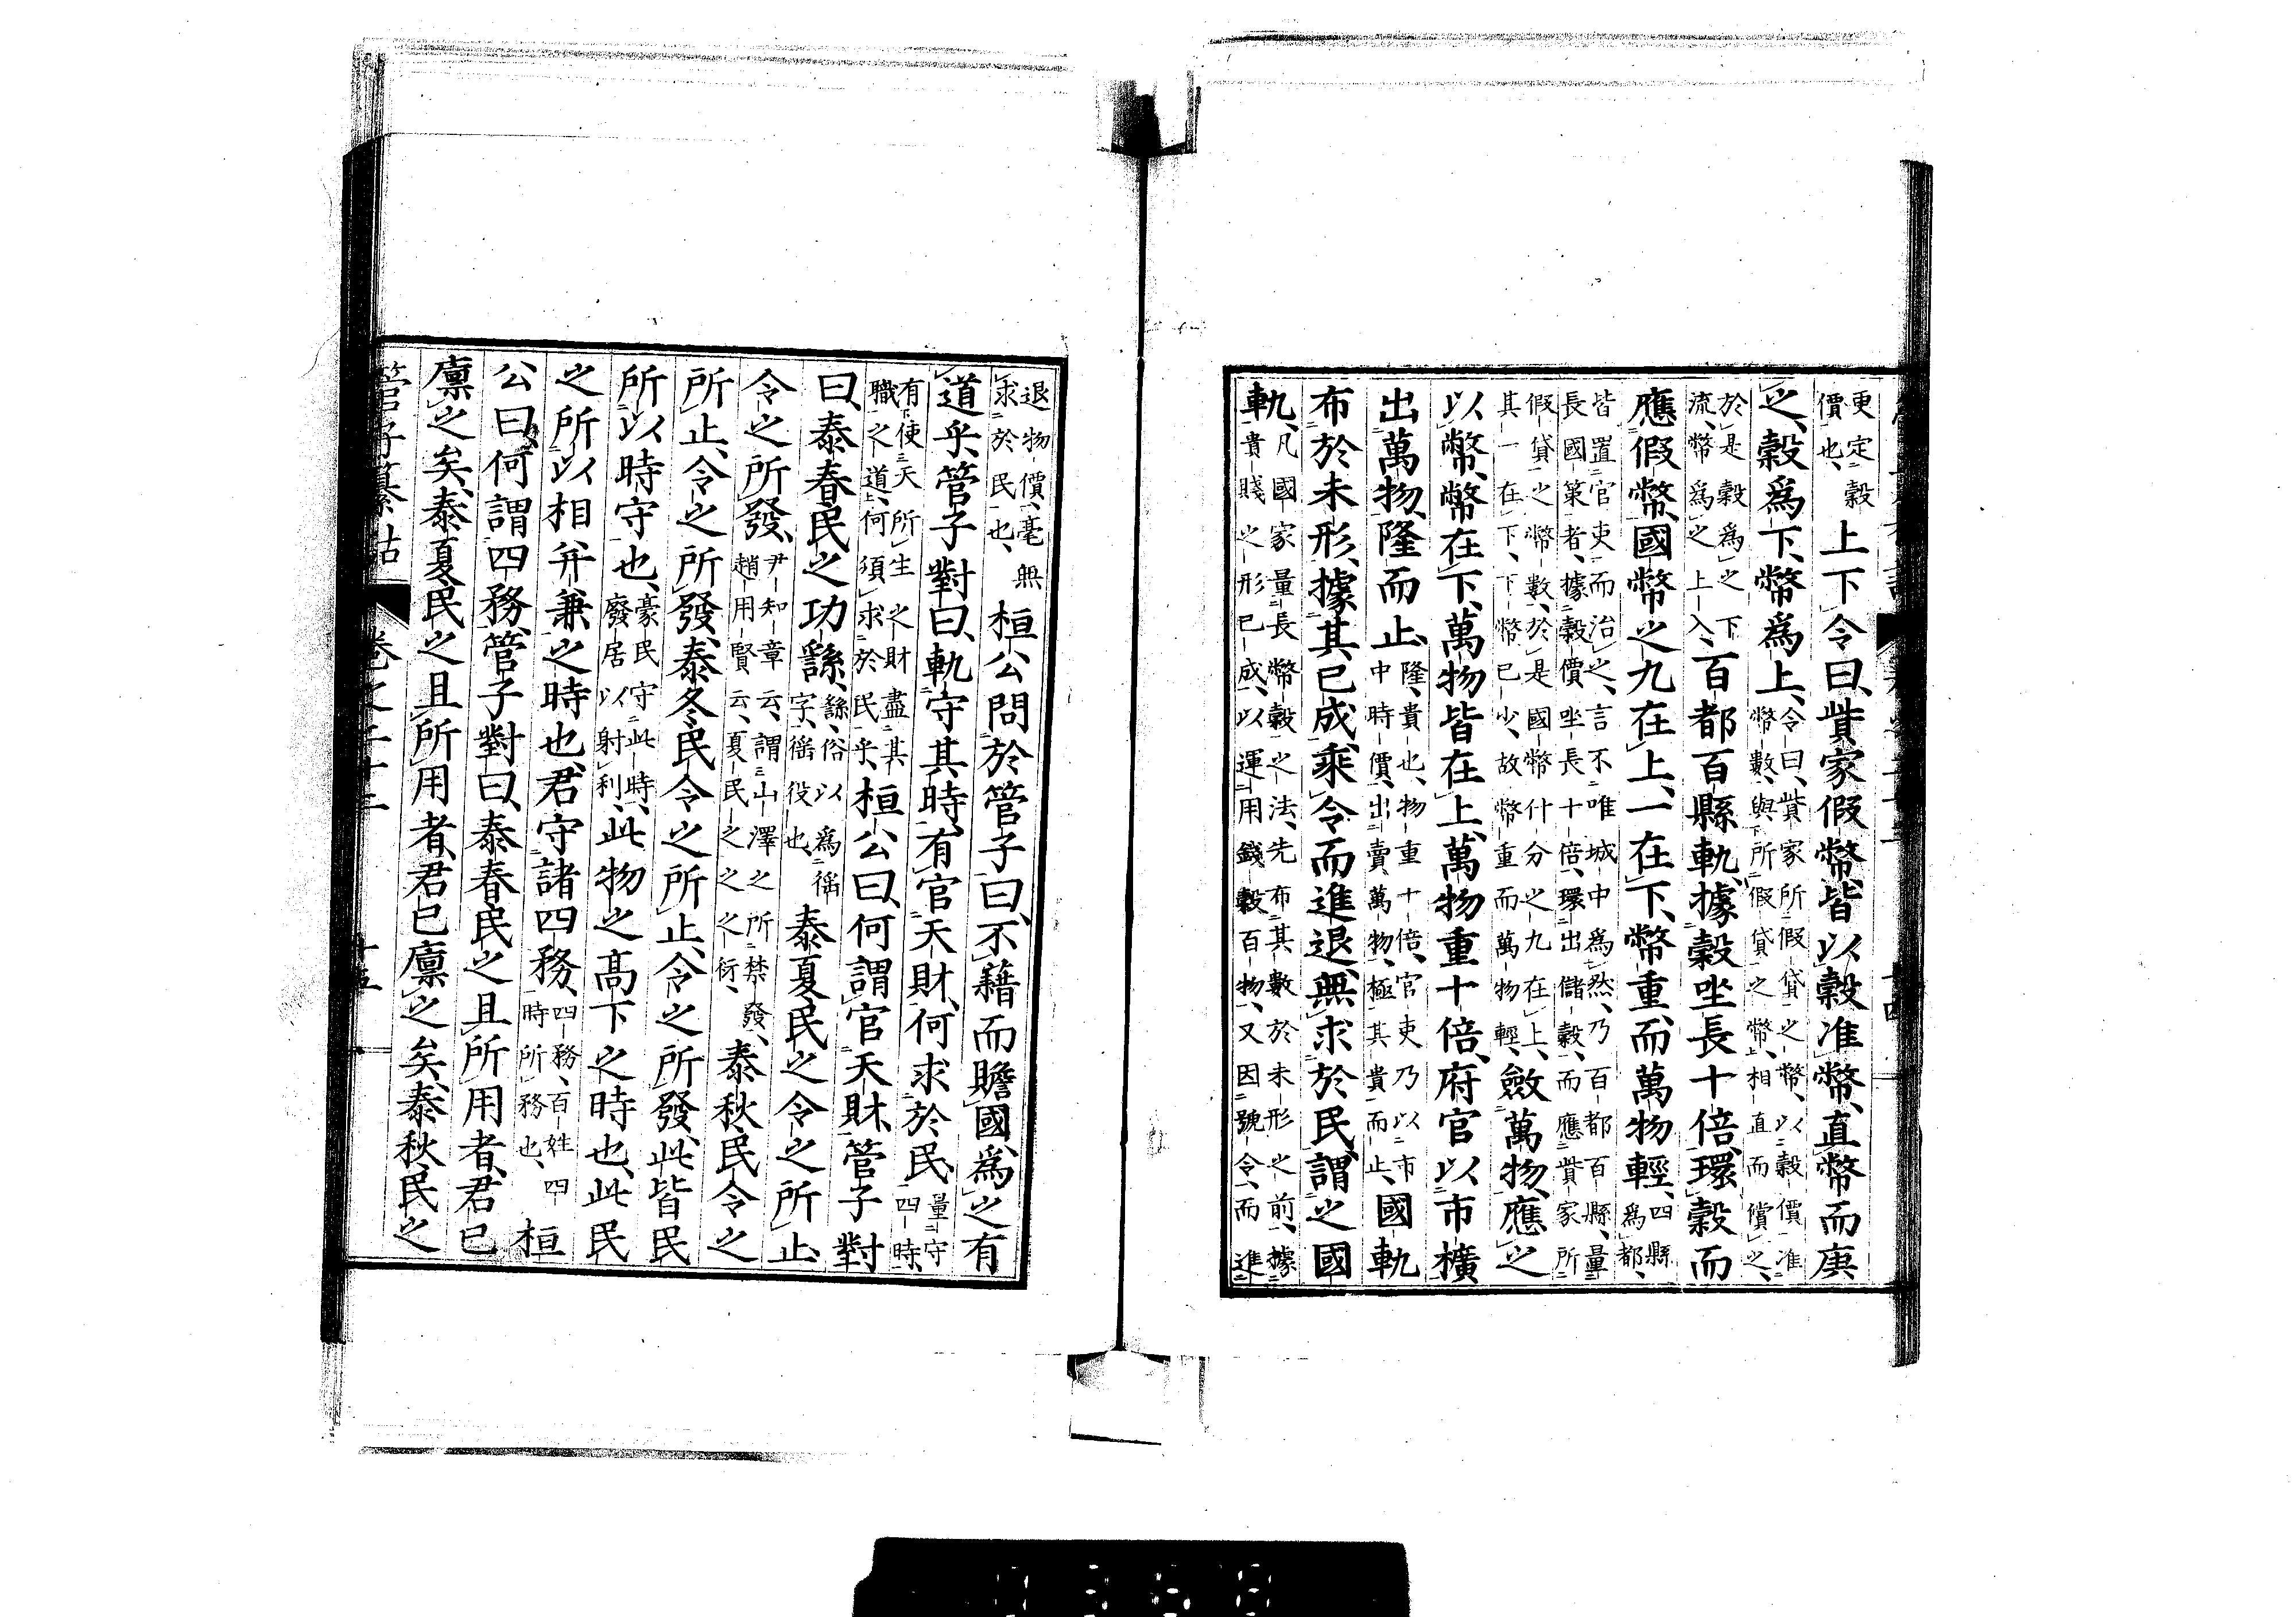 更定穀價也、上下令曰、貲家假幣、皆以穀准幣、直幣而庚
之、穀爲下、幣爲上、令曰、貲家所假貸之幣、以穀價准幣數、與所假貸之幣、相直而償之、
於是穀爲之下流、幣爲之上入、百都百縣軌、據穀坐長十倍、環穀而
應假幣、國幣之九在上、一在下、幣重而萬物輕、四縣爲都、
皆置官吏而治之、言不唯城中爲然、乃百都百縣、量長國策者、據穀價坐長十倍、環出儲穀、而應貲家所
假貸之幣數、於是國幣什分之九在上、其一在下、下幣已少、故幣重而萬物輕、斂萬物、應之
以幣、幣在下、萬物皆在上、萬物重十倍、府官以市擴
出萬物、隆而止、隆、貴也、物重十倍、官吏乃以市中時價、出賣萬物、極其貴而止、國軌
布於未形、據其已成、乘令而進退、無求於民、謂之國
軌、凡國家量長幣穀之法、先布其數於未形之前、據貴賤之形已成、以運用錢穀百物、又因號令、而進
退物價、毫無求於民也、桓公問於管子曰、不藉而贍國、爲之有
道乎、管子對曰、軌守其時、有官天財、何求於民、量守四時、
有使天所生之財盡其職之道、何須求於民乎、桓公曰、何謂官天財、管子對
曰、泰春民之功繇、繇、俗以爲徭字、徭役也、泰夏民之令之所止、
令之所發、尹知章云、謂山澤之所禁發、趙用賢云、夏民之之之衍、泰秋民令之
所止、令之所發、泰冬民令之所止、令之所發、此皆民
所以時守也、豪民守此時、廢居以射利、此物之高下之時也、此民
之所以相幷兼之時也、君守諸四務、四務、百姓四時所務也、桓
公曰、何謂四務、管子對曰、泰春民之且所用者、君已
廩之矣、泰夏民之且所用者、君已廩之矣、泰秋民之
管子纂詁　卷之二十二　十五